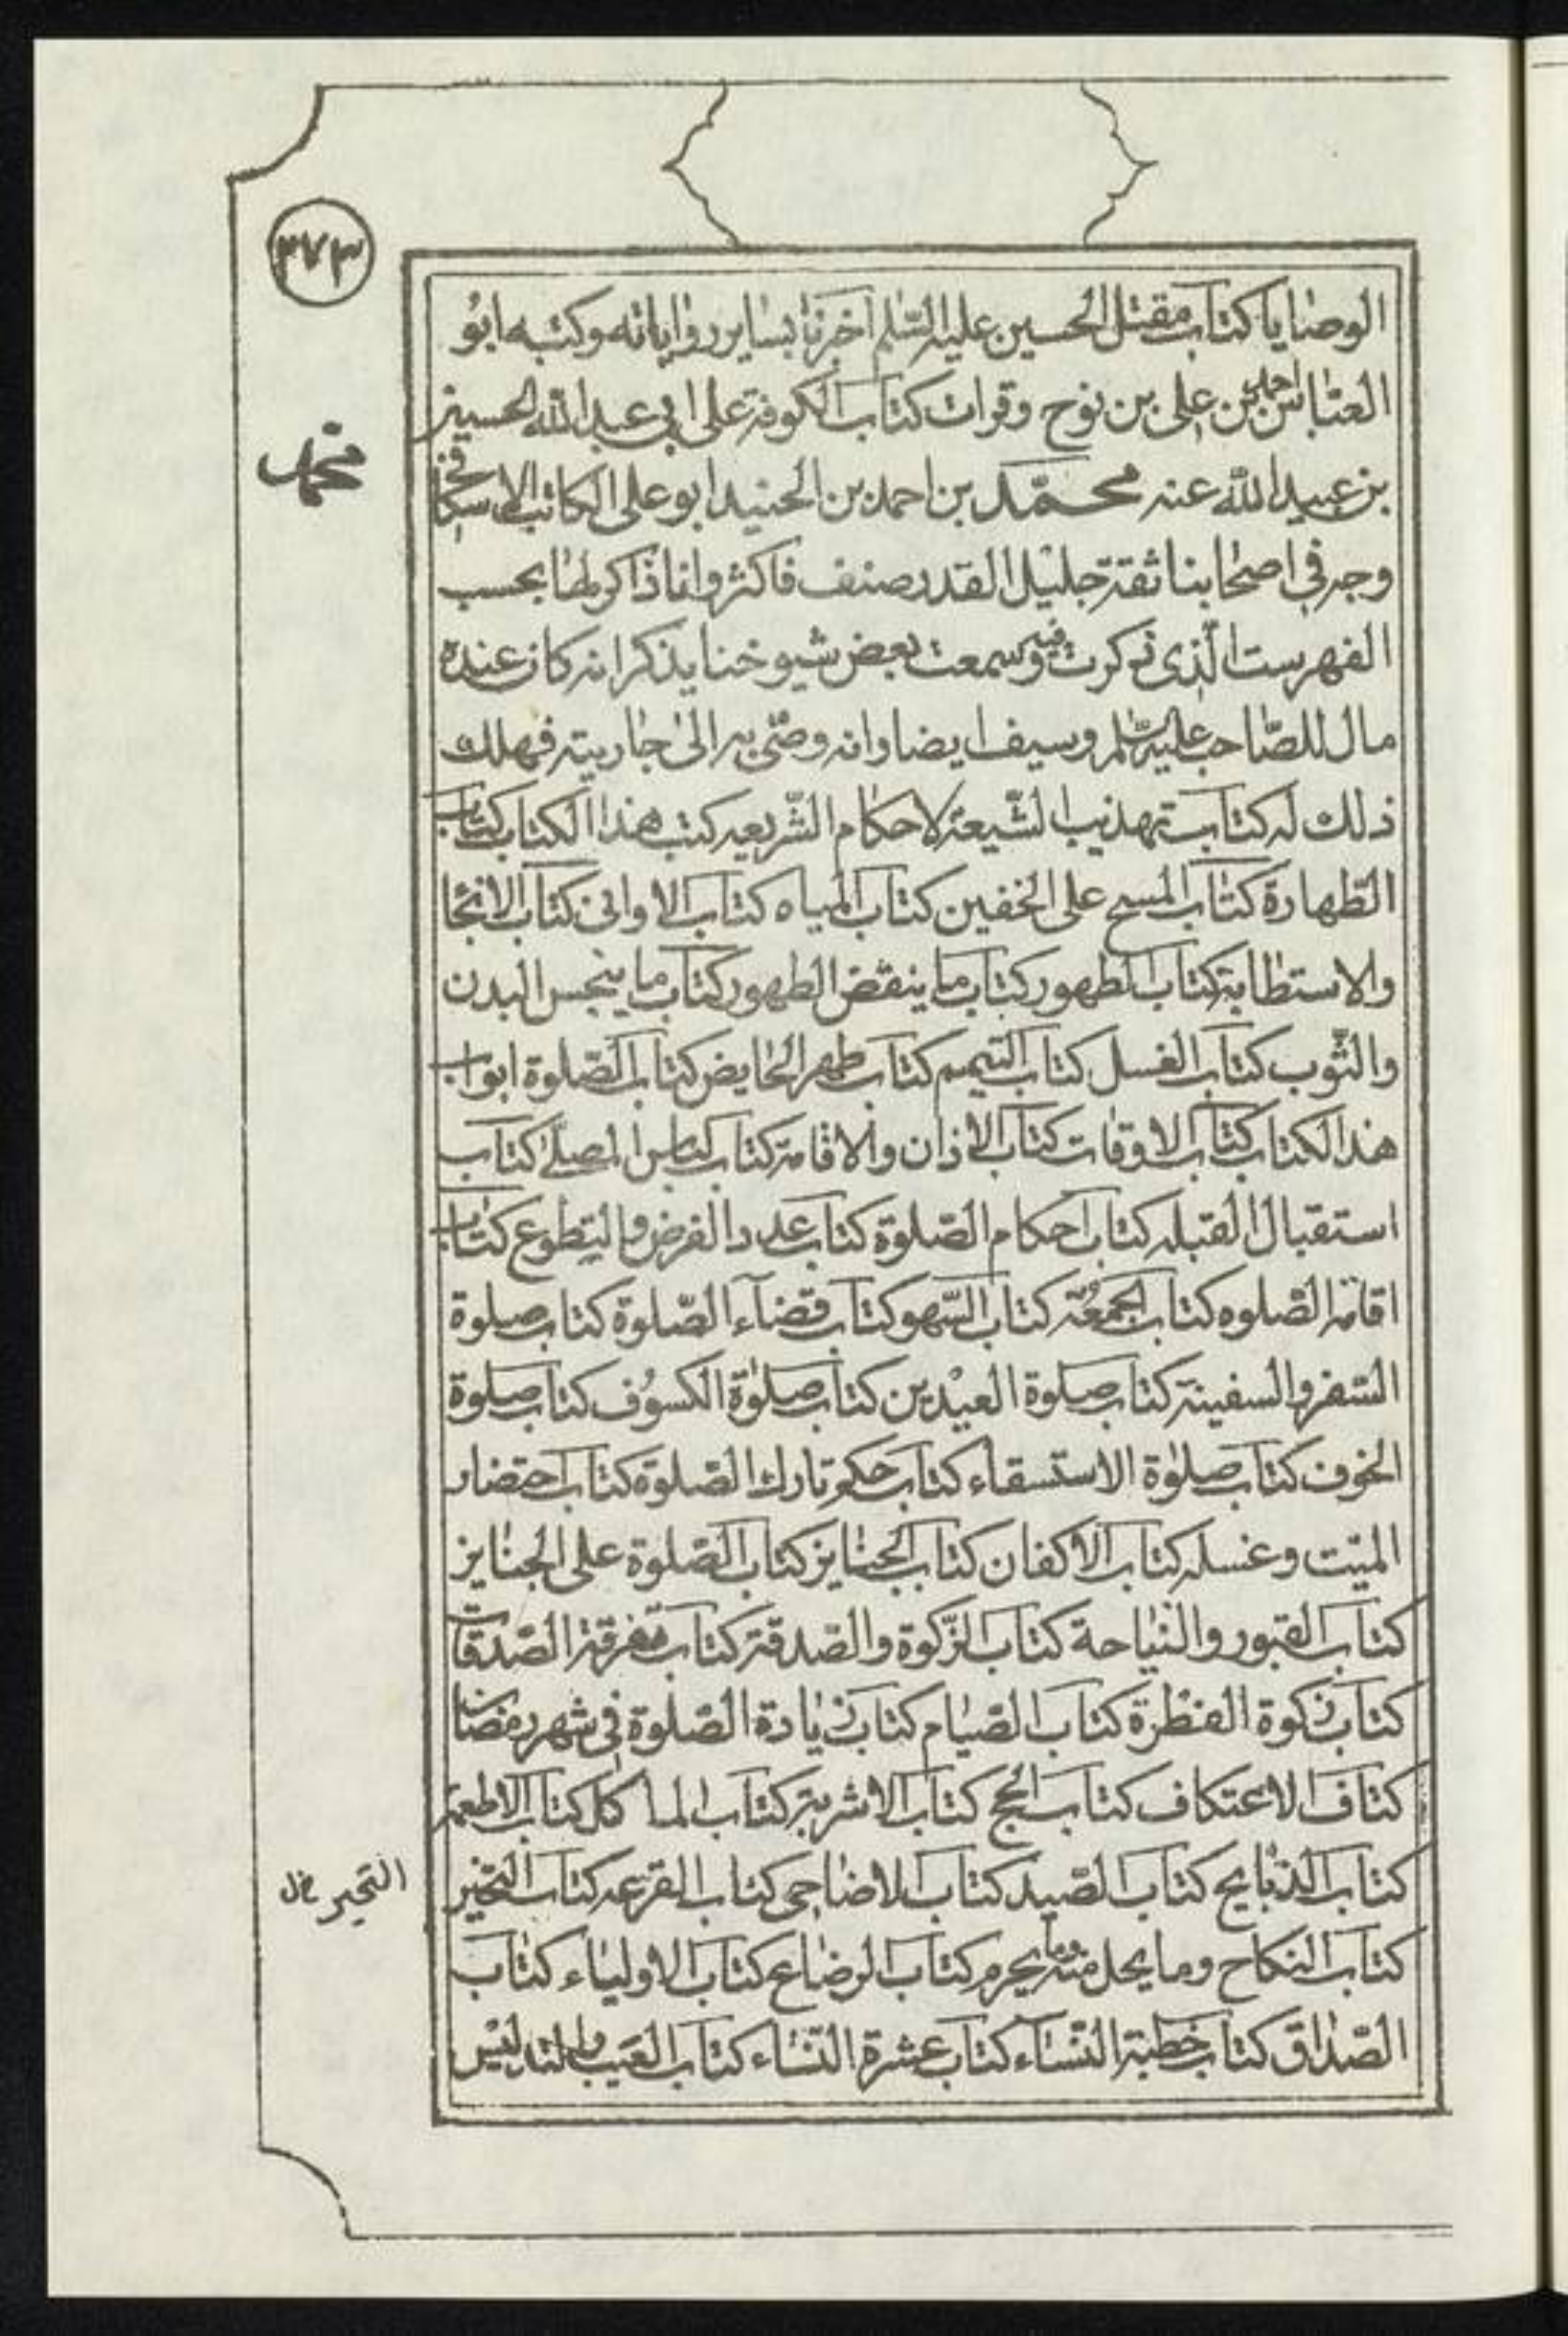 ٢٧٣
الوصايا كتاب مقتل الحسين عليه السلم اخبرنا بساير رواياته وكتبه ابو
العباس احمد بن على بن نوح وقرات كتاب الكوفة على ابى عبد الله الحسين
بن عبيد الله عنه محمّد بن احمد بن الجنيد ابو على الكاتب الاسكافى
محمد
وجه فى اصحابنا ثقة جليل القدر صنف فاكثر وانا ذاكر لها بحسب
الفهرست الّذى ذكرت فيه وسمعت بعض شيوخنا يذكر انه كان عنده
مال للصّاحب عليه السّلم وسيف ايضا وانه وصّى به الى جاريته فهلك
ذلك له كتاب تهذيب الشّيعة لاحكام الشّريعه كتب هذا الكتاب كتاب
الطّهارة كتاب المسح على الخفين كتاب المياه كتاب الاوانى كتاب الانجا
والاستطابة كتاب الطهور كتاب ما ينقض الطهور كتاب ما ينجس البدن
والثّوب كتاب الغسل كتاب التيمم كتاب طهر الحايض كتاب الصّلوة ابواب
هذا الكتاب كتاب الاوقات كتاب الاذان والاقامة كتاب لباس المصلى كتاب
استقبال القبله كتاب احكام الصّلوة كتاب عدد الفرض والتطوع كتاب
اقامة الصّلوه كتاب الجمعُة كتاب السّهو كتاب قضآء الصّلوة كتاب صلوة
السّفر والسفينة كتاب صلوة العيدين كتاب صلوٰة الكسوُف كتاب صلوة
الخوف كتاب صلوٰة الاستسقاء كتاب حكم تارك الصّلوة كتاب احتضار
الميّت وغسله كتاب الاكفان كتاب الجنايز كتاب الصّلوة على الجنايز
كتاب القبور والنياحة كتاب الزّكوة والصّدقة كتاب تفرقة الصّدقات
كتاب زكوة الفطرة كتاب الصّيام كتاب زيادة الصّلوة فى شهر رمضان
كتاف الاعتكاف كتاب الحج كتاب الاشربة كتاب الماكل كتاب الاطعمة
كتاب الذبايح كتاب الصّيد كتاب الاضاحى كتاب القرعه كتاب التخير
التحير خ ل
كتاب النكاح وما يحل منه وما يحرم كتاب الرضاع كتاب الاولياء كتاب
الصّداق كتاب خطبة النّسآء كتاب عشرة النّساء كتاب العيب والتدليس